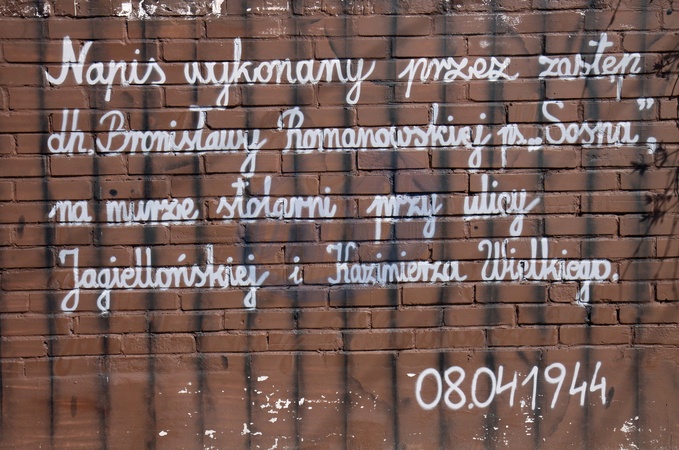 Napis wykonany przez zastęp
dh. Bronisławy Romanowskiej ps. „Sosna”,
na murze stolarni przy ulicy
Jagiellońskiej i Kazimierza Wielkiego.
08.041944